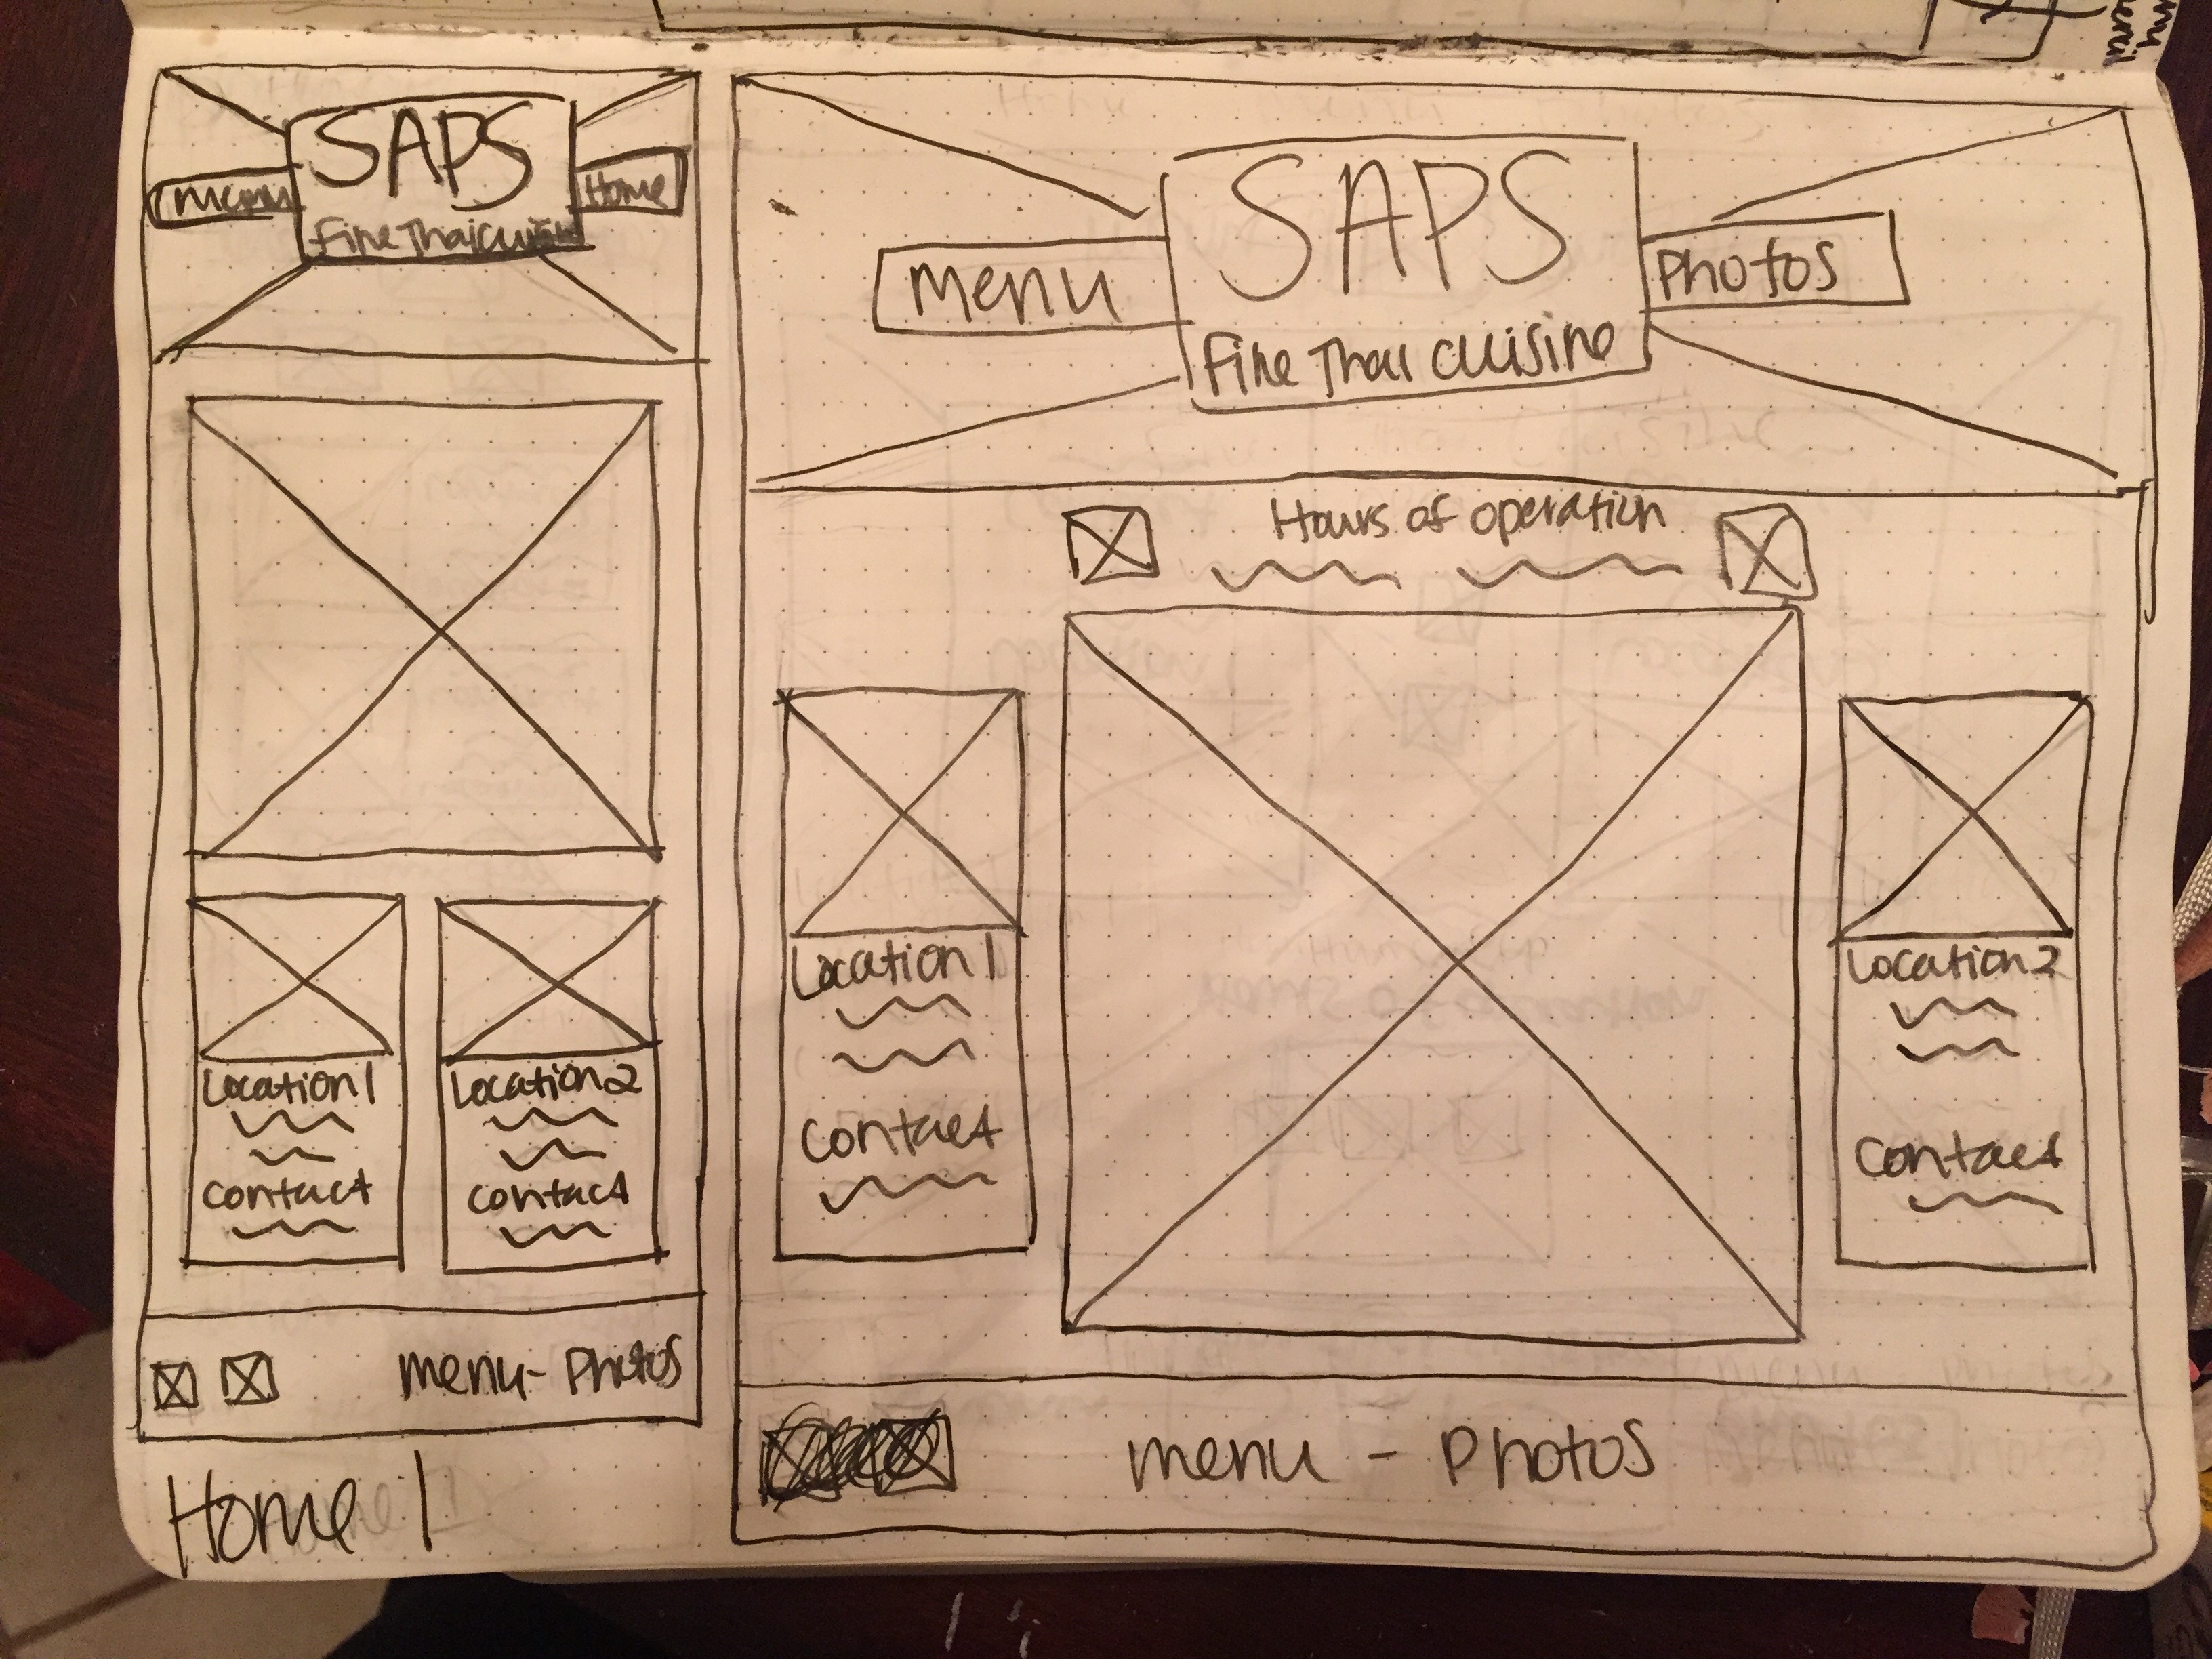 SAPS
menu
Home
Fine Thai cuisine
Location 1
contact
Location 2
contact
menu - Photos
Home 1
SAPS
menu
Photos
Fine Thai cuisine
Hours of operation
Location 1
Contact
Location 2
Contact
menu - Photos